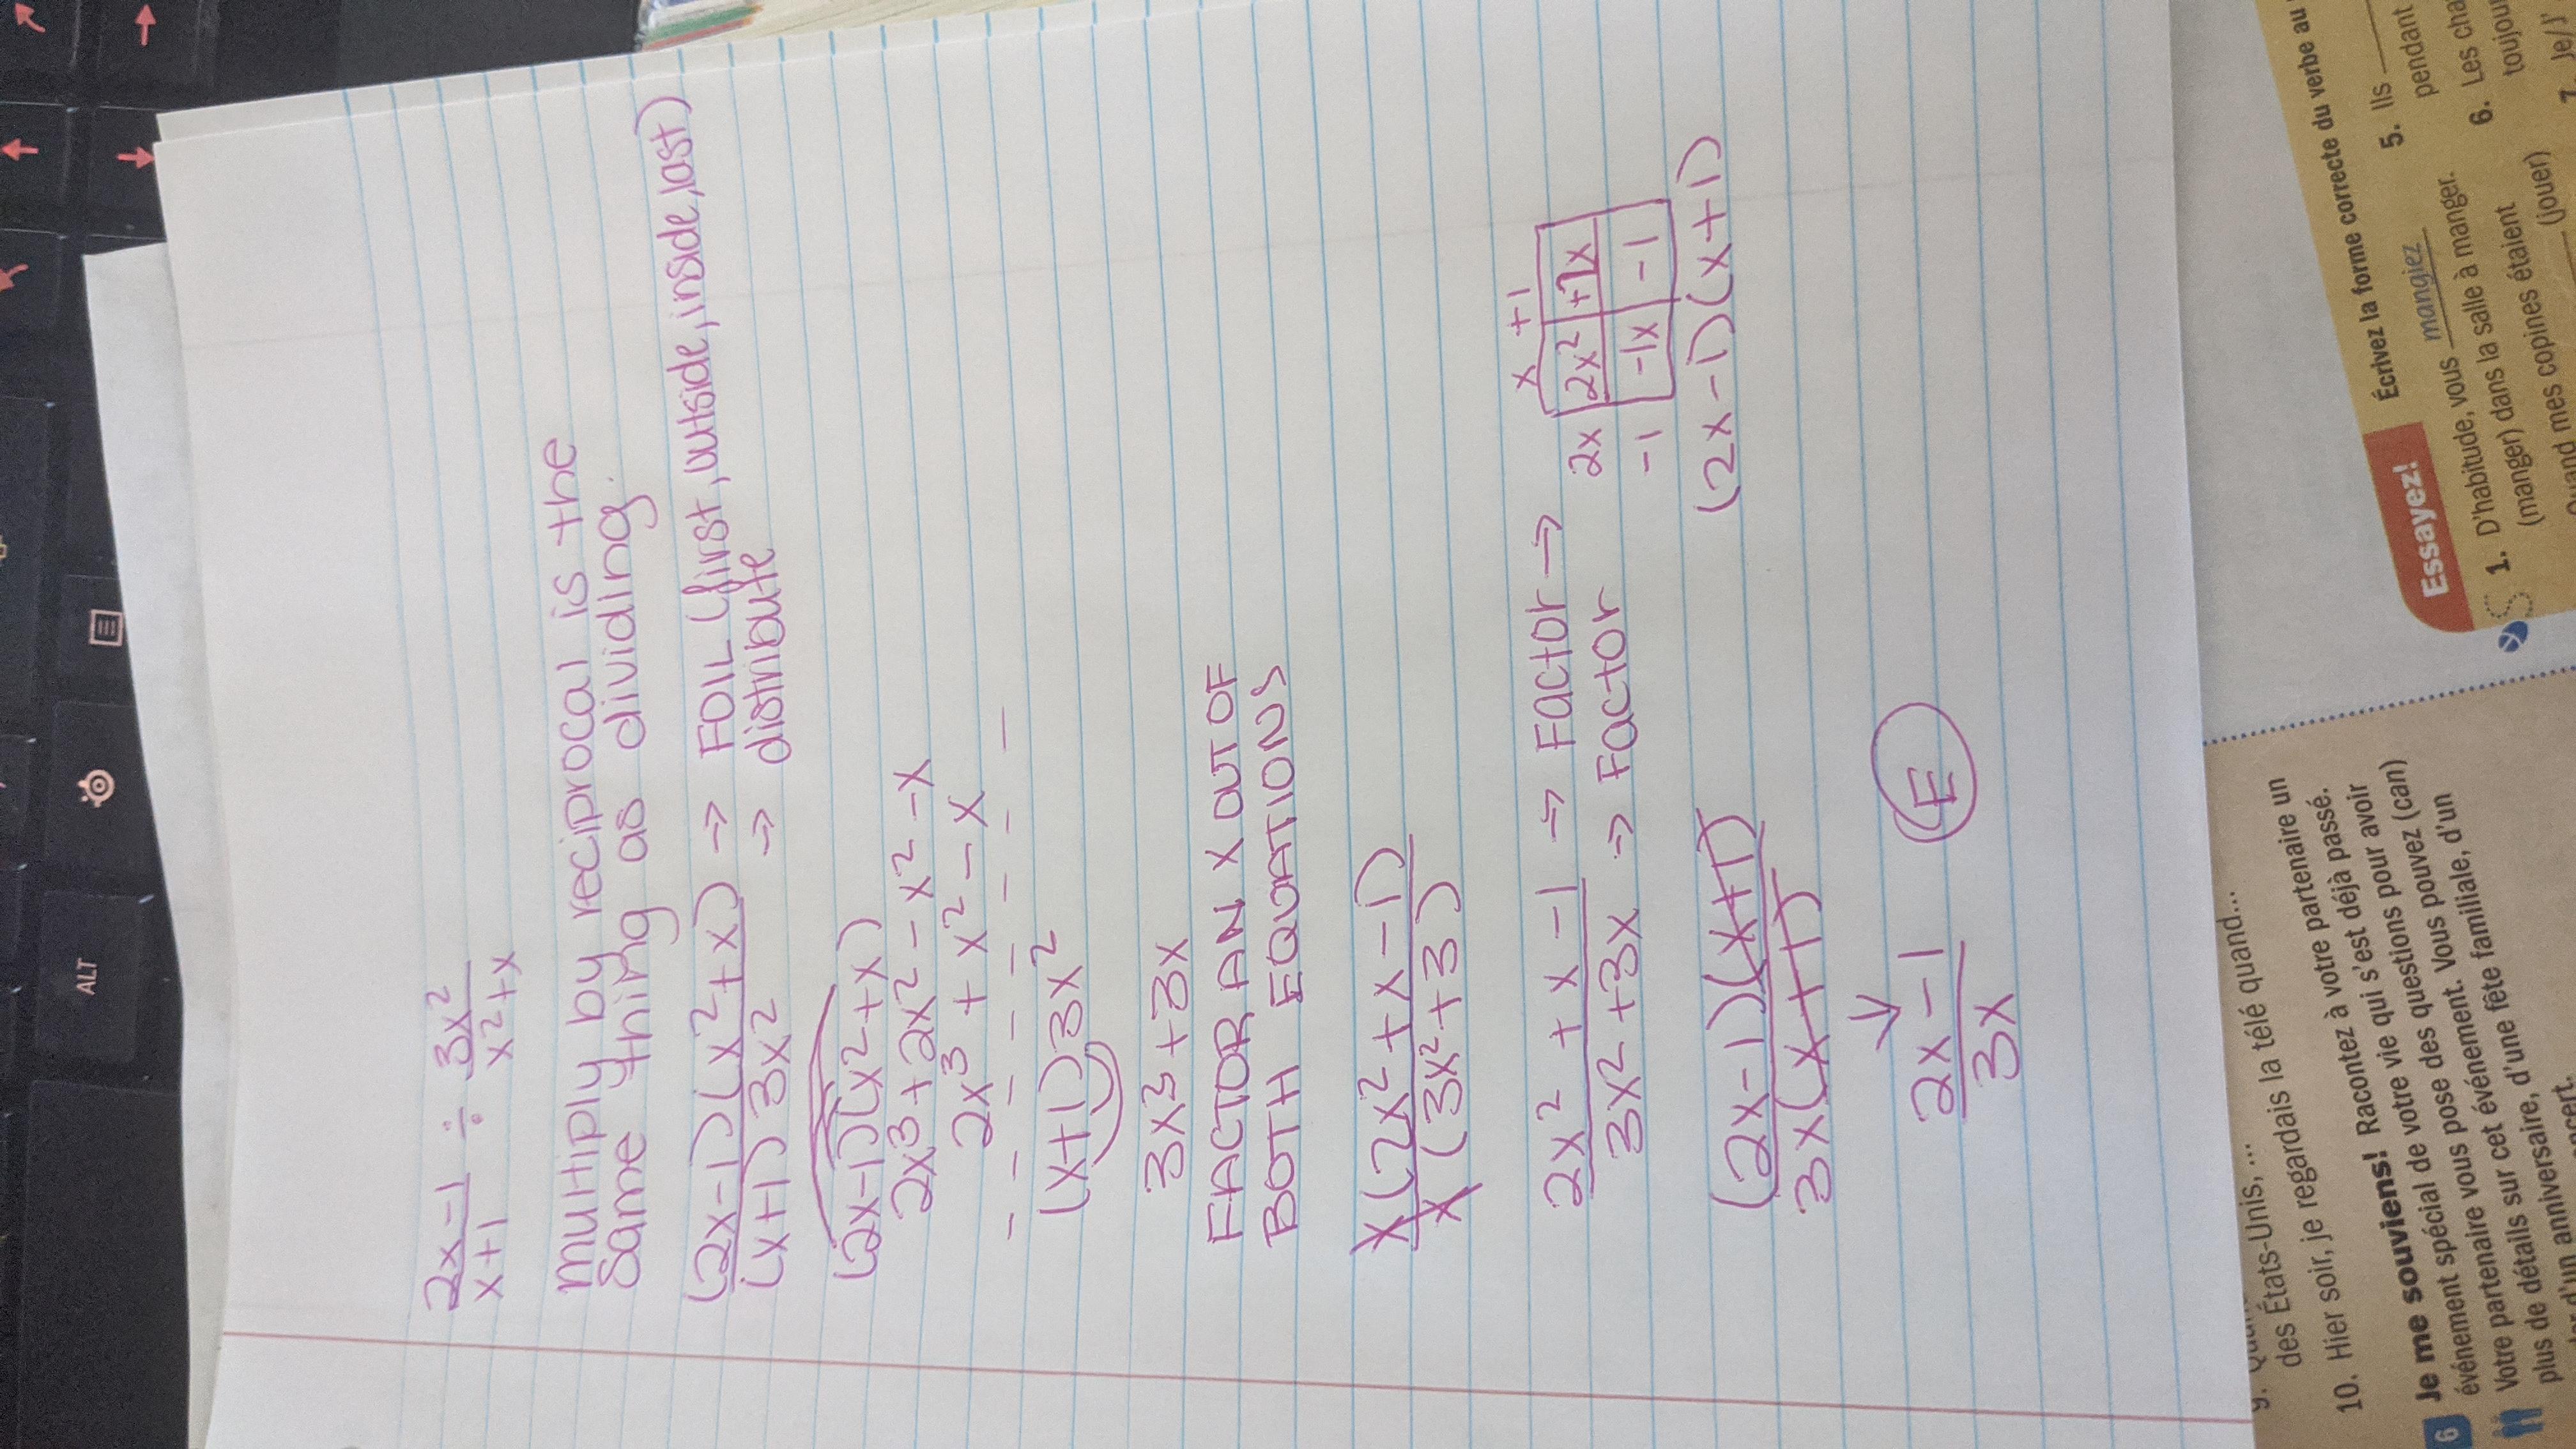 2x-1 ÷ 3x²
x+1 x²+x
multiply by reciprocal is the
same thing as dividing.
(2x-1)(x²+x) → FOIL (first, outside, inside, last)
(x+1) 3x² → distribute
(2x-1)(x²+x)
2x³+2x²-x²-x
2x³+x²-x
(x+1)3x²
3x³+3x
FACTOR AN X OUT OF
BOTH EQUATIONS
x(2x²+x-1)
x(3x²+3)
2x²+x-1 → Factor →
3x²+3x → Factor
x +1
2x 2x² +1x
-1 -1x -1
(2x-1)(x+1)
(2x-1)(x+1)
3x(x+1)
↓
2x-1 E
3x
ALT
des États-Unis, ...
10. Hier soir, je regardais la télé quand...
6 Je me souviens! Racontez à votre partenaire un
événement spécial de votre vie qui s'est déjà passé.
Votre partenaire vous pose des questions pour avoir
plus de détails sur cet événement. Vous pouvez (can)
d'un anniversaire, d'une fête familiale, d'un
Essayez! Écrivez la forme correcte du verbe au
1. D'habitude, vous mangiez
(manger) dans la salle à manger.
mes copines étaient
(jouer)
5. Ils
pendant
6. Les
7. Je/J'